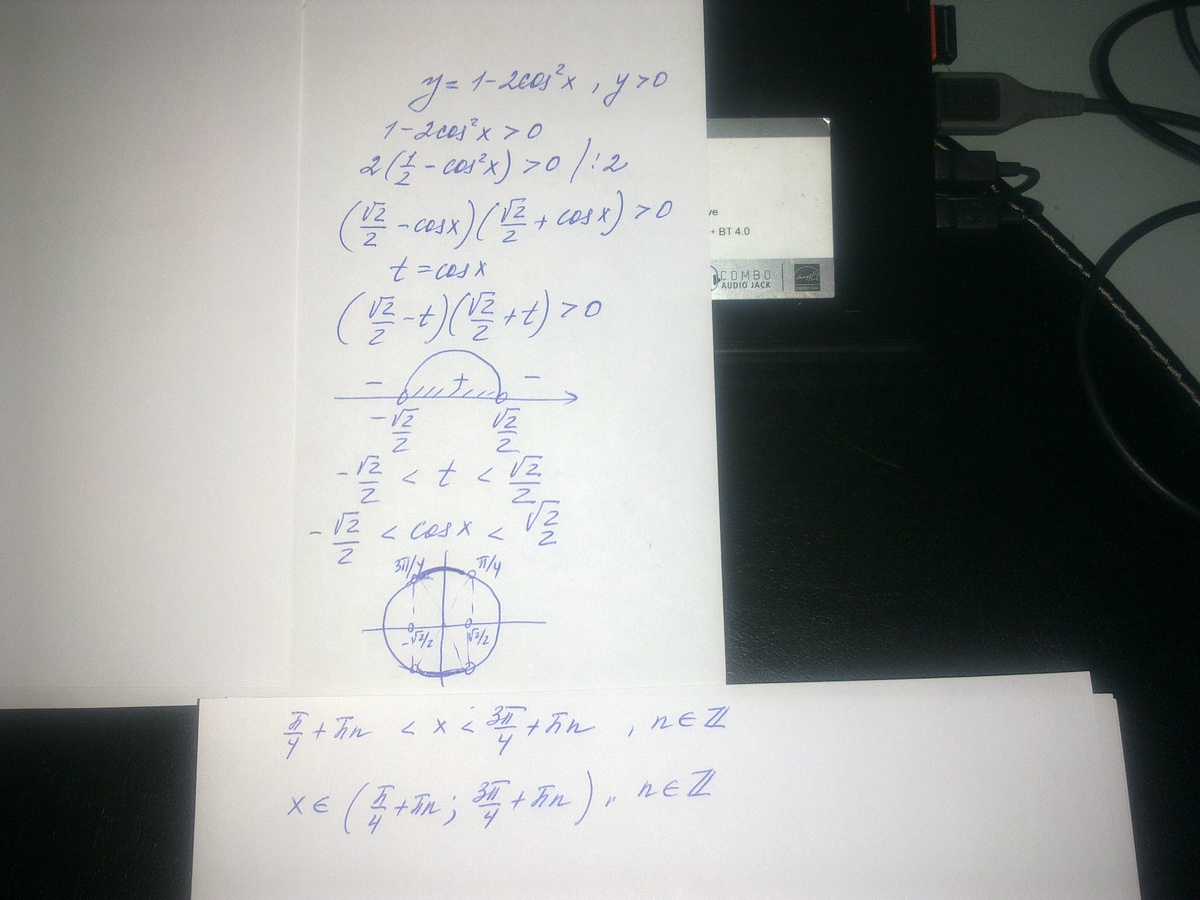 y = 1-2cos²x , y>0
1-2cos²x > 0
2(1/2 - cos²x) > 0 / :2
(√2/2 - cosx)(√2/2 + cosx) > 0
t = cosx
(√2/2 - t)(√2/2 + t) > 0
- + -
-√2/2 √2/2
-√2/2 < t < √2/2
-√2/2 < cosx < √2/2
3π/4 π/4
-√2/2 √2/2
π/4 + πn < x < 3π/4 + πn , n∈ℤ
x∈(π/4 + πn; 3π/4 + πn), n∈ℤ
ve
+ BT 4.0
COMBO
AUDIO JACK